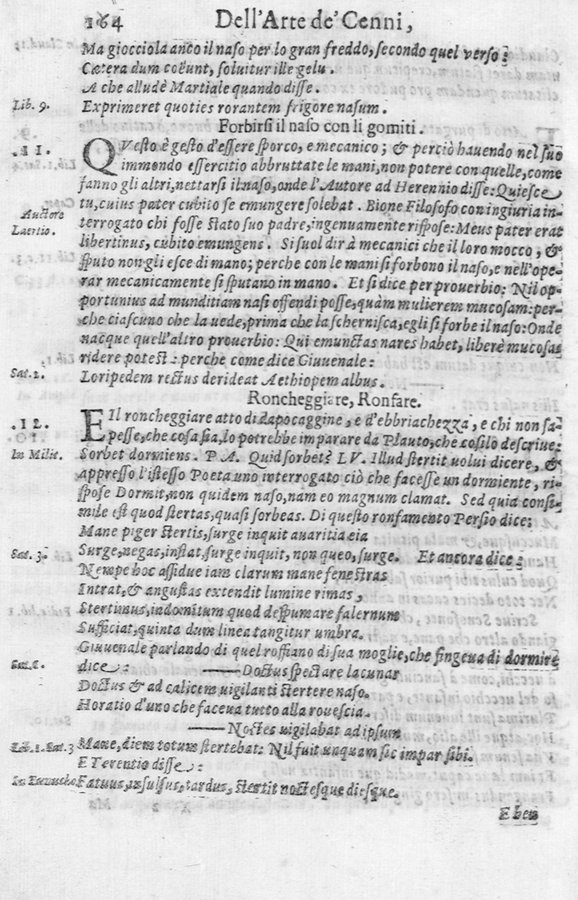 164 Dell'Arte de' Cenni,
Ma giocciola anco il naso per lo gran freddo, secondo quel verso:
Cætera dum coëunt, soluitur ille gelu.
A che allude Martiale quando disse.
Lib. 9. Exprimeret quoties rorantem frigore nasum.
Forbirsi il naso con li gomiti.
.11. QVesto è gesto d'essere sporco, e mecanico; & perciò hauendo nel suo
immondo essercitio abbruttate le mani, non potere con quelle, come
fanno gli altri, nettarsi il naso, onde l'Autore ad Herennio disse: Quiesce
tu, cuius pater cubito se emungere solebat. Bione Filosofo con ingiuria in-
Auctore Laertio. terrogato chi fosse stato suo padre, ingenuamente rispose: Meus pater erat
libertinus, cubito emungens. Si suol dir à mecanici che il loro mocco, &
sputo non gli esce di mano; perche con le mani si forbono il naso, e nell'ope-
rar mecanicamente si sputano in mano. Et si dice per prouerbio: Nil op-
portunius ad munditiam nasi offendi posse, quàm mulierem mucosam: per-
che ciascuno che la uede, prima che la schernisca, egli si forbe il naso: Onde
nacque quell'altro prouerbio: Qui emunctas nares habet, liberè mucosas
ridere potest: perche come dice Giuuenale:
Sat. 2. Loripedem rectus derideat Aethiopem albus.
Roncheggiare, Ronfare.
.12. E Il roncheggiare atto di dapocaggine, e d'ebbriachezza, e chi non sa-
pesse, che cosa sia, lo potrebbe imparare da Plauto, che cosi lo descriue:
In Milit. Sorbet dormiens. P. A. Quid sorbet? LV. Illud stertit uolui dicere, &
appresso l'istesso Poeta uno interrogato ciò che facesse un dormiente, ri-
spose Dormit, non quidem naso, nam eo magnum clamat. Sed quia consi-
mile est quod stertas, quasi sorbeas. Di questo ronfamento Persio dice:
Mane piger stertis, surge inquit auaritia eia
Sat. 3. Surge, negas, instat. surge inquit, non queo, surge. Et ancora dice:
Nempe hoc assidue iam clarum mane fenestras
Intrat, & angustas extendit lumine rimas,
Stertimus, indomitum quod despumare falernum
Sufficiat, quinta dum linea tangitur umbra.
Giuuenale parlando di quel roffiano di sua moglie, che fingeua di dormire
dice: Doctus spectare lacunar
Doctus & ad calicem uigilanti stertere naso.
Horatio d'uno che faceua tutto alla rouescia.
Noctes uigilabat ad ipsum
Lib. 1. Sat. 3 Mane, diem totum stertebat: Nil fuit unquam sic impar sibi.
E Terentio disse:
In Eunucho. Fatuus, insulsus, tardus, stertit noctesque diesque.
E ben